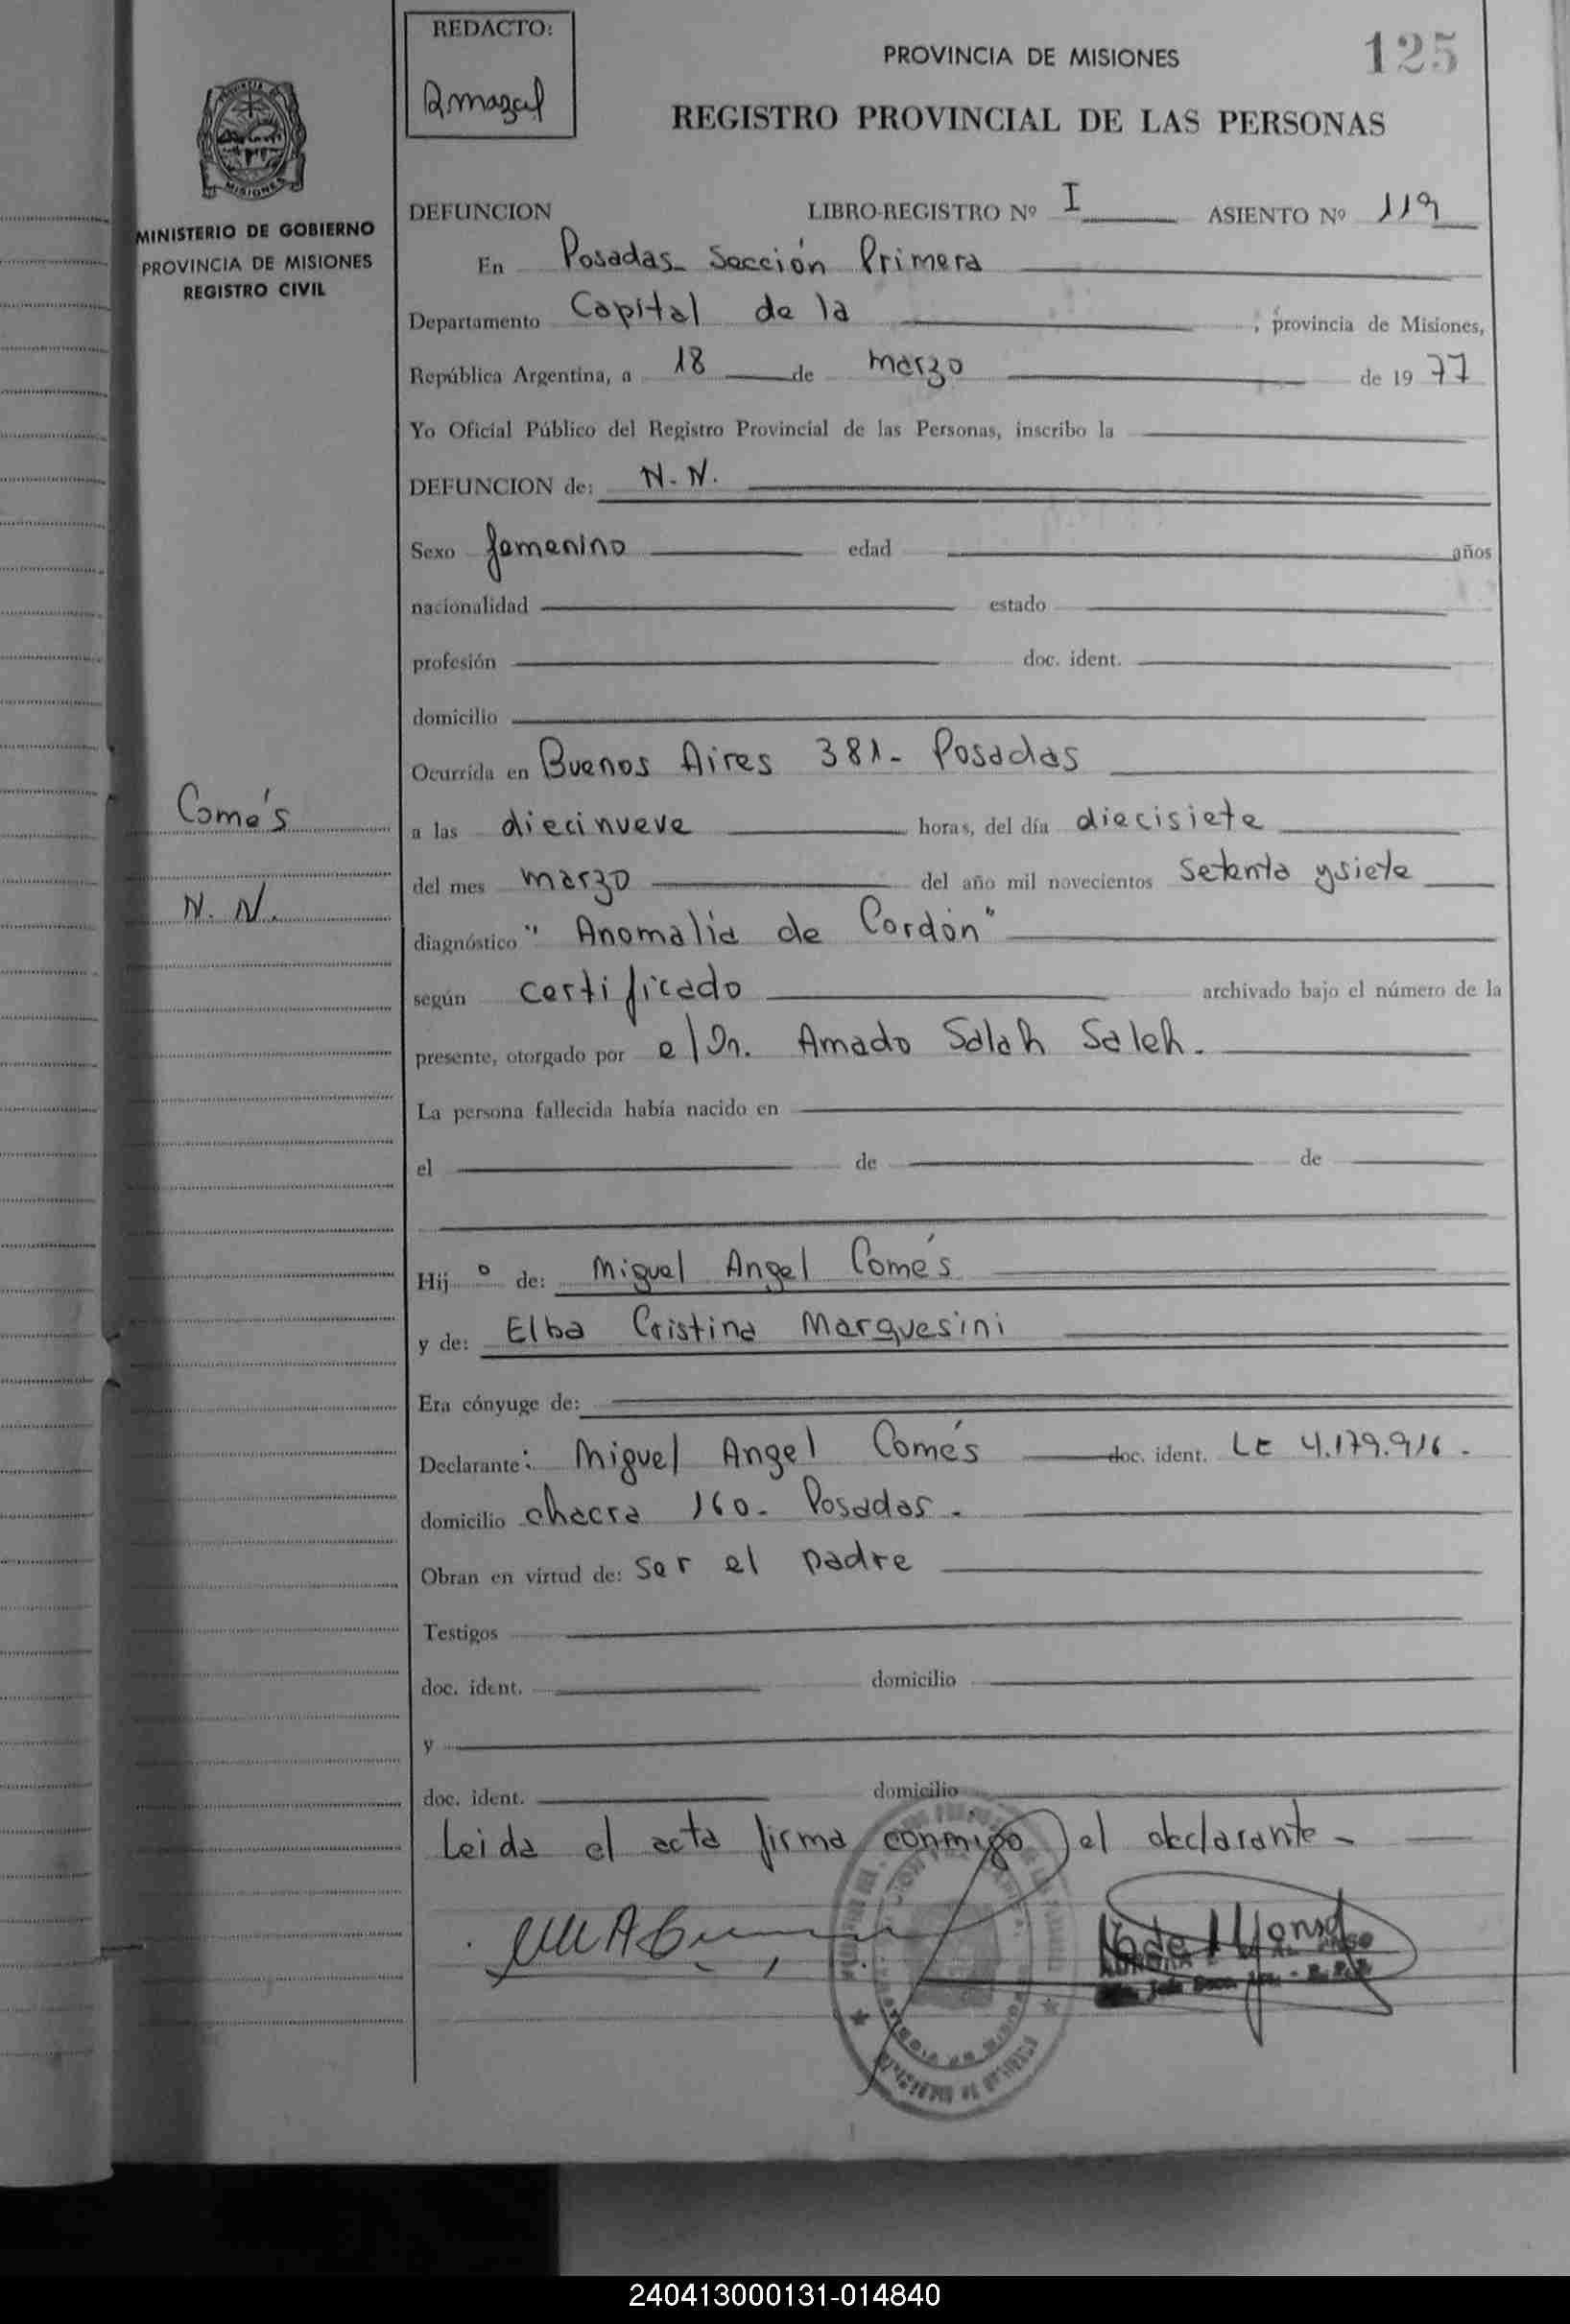 REDACTO:
PROVINCIA DE MISIONES
125
REGISTRO PROVINCIAL DE LAS PERSONAS
MINISTERIO DE GOBIERNO
PROVINCIA DE MISIONES
REGISTRO CIVIL
DEFUNCION LIBRO-REGISTRO Nº I ASIENTO Nº 119
En Posadas - Sección Primera
Departamento Capital de la , provincia de Misiones,
República Argentina, a 18 de marzo de 19 77
Yo Oficial Público del Registro Provincial de las Personas, inscribo la
DEFUNCION de: N. N.
Sexo femenino edad años
nacionalidad estado
profesión doc. ident.
domicilio
Ocurrida en Buenos Aires 381 - Posadas
Comés
a las diecinueve horas, del día diecisiete
del mes marzo del año mil novecientos setenta y siete
N. N.
diagnóstico " Anomalia de Cordón "
según certificado archivado bajo el número de la
presente, otorgado por el Dr. Amado Salah Saleh.
La persona fallecida había nacido en
el de de
Hij o de: Miguel Angel Comés
y de: Elba Cristina Marquesini
Era cónyuge de:
Declarante: Miguel Angel Comés doc. ident. LE 4.179.916.
domicilio chacra 160 - Posadas.
Obran en virtud de: ser el padre
Testigos
doc. ident. domicilio
y
doc. ident. domicilio
Leida el acta firma conmigo el declarante -
240413000131-014840